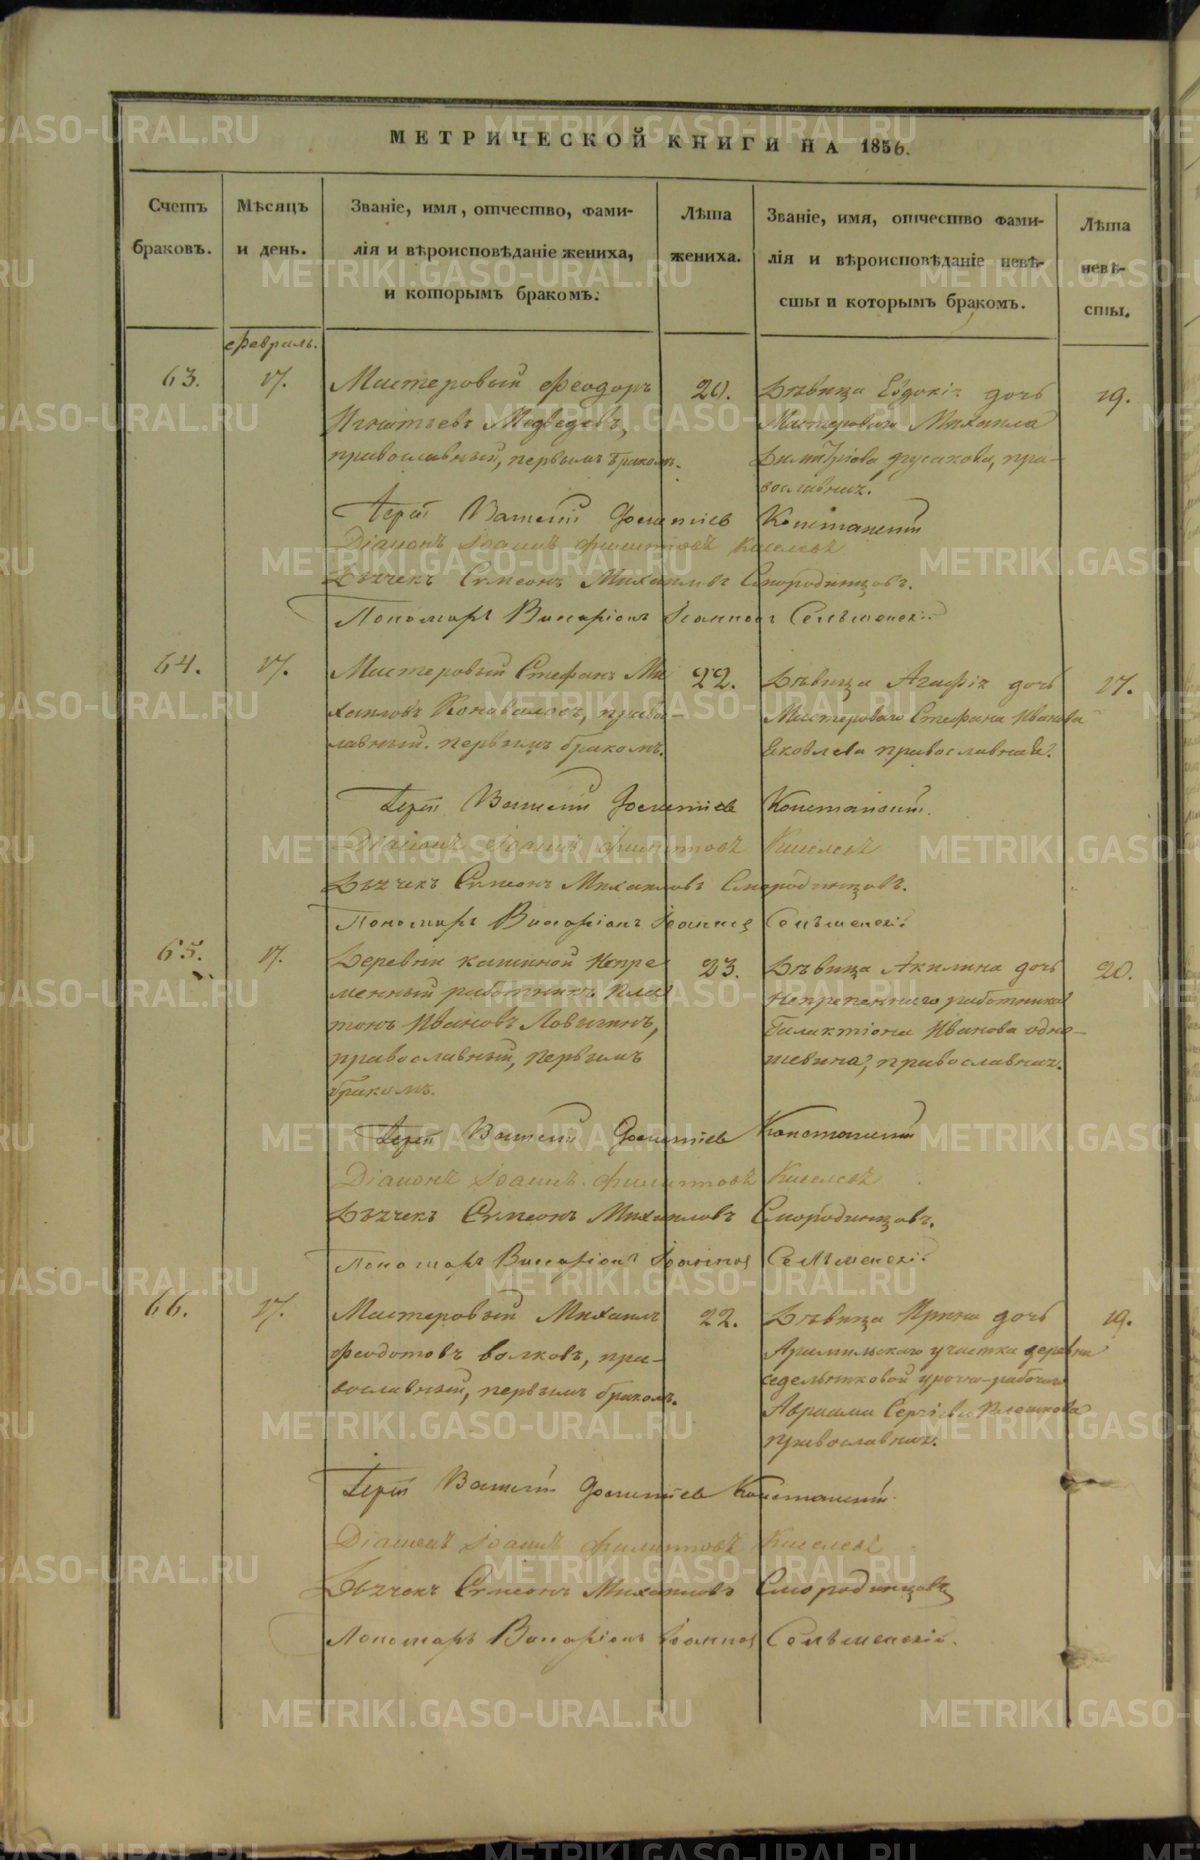 МЕТРИЧЕСКОЙ КНИГИ НА 1856.
Счетъ браковъ.
Мѣсяцъ и день.
Званіе, имя, отчество, фами-
лія и вѣроисповѣданіе жениха,
и которымъ бракомъ.
Лѣта жениха.
Званіе, имя, отчество фами-
лія и вѣроисповѣданіе невѣ-
сты и которымъ бракомъ.
Лѣта невѣ-
сты.
февраль.
63. 17.
Мастеровый Феодоръ
Игнатьевъ Медведевъ,
православный, первымъ бракомъ.
20.
Дѣвица Евдокія дочь
Мастероваго Михаила
Димитріева, пра-
вославная.
19.
Іерей Василій Константи
Діаконъ Іоаннъ Филипповъ Киселевъ
Дьячекъ Симеонъ Михаиловъ Смородинцовъ.
Пономарь Виссаріонъ Іоанновъ
64. 17.
Мастеровый Стефанъ Ми
хаиловъ Коновалосъ, право-
лавный. первымъ бракомъ.
22.
Дѣвица Агафія дочь
Мастероваго Стефана Иванова
Яковлева православная.
17.
Іерей Василій
Діаконъ Іоаннъ Филипповъ Киселевъ
Дьячекъ Симеонъ Михаиловъ Смородинцовъ.
Пономарь Виссаріонъ
65. 17.
Деревни каменной Непре
менный работникъ Пла
тонъ Ивановъ Ловыгинъ,
православный, первымъ
бракомъ.
23.
Дѣвица Акилина дочь
непременнаго работника
Галактіона Иванова одно-
шевина, православная.
20.
Іерей Василій
Діаконъ Іоаннъ Филипповъ Киселевъ
Дьячекъ Симеонъ Михаиловъ Смородинцовъ.
Пономарь Виссаріонъ
66. 17.
Мастеровый Михаилъ
Феодотовъ волковъ, пра-
вославный, первымъ бракомъ.
22.
Дѣвица Ирина дочь
Арамильскаго участка деревни
седельниковой урочн-рабочаго
Авраама Сергіева Плешкова
православная.
19.
Іерей Василій
Діаконъ Іоаннъ Филипповъ Киселевъ
Дьячекъ Симеонъ Михаиловъ Смородинцовъ
Пономарь Виссаріонъ
METRIKI.GASO-URAL.RU